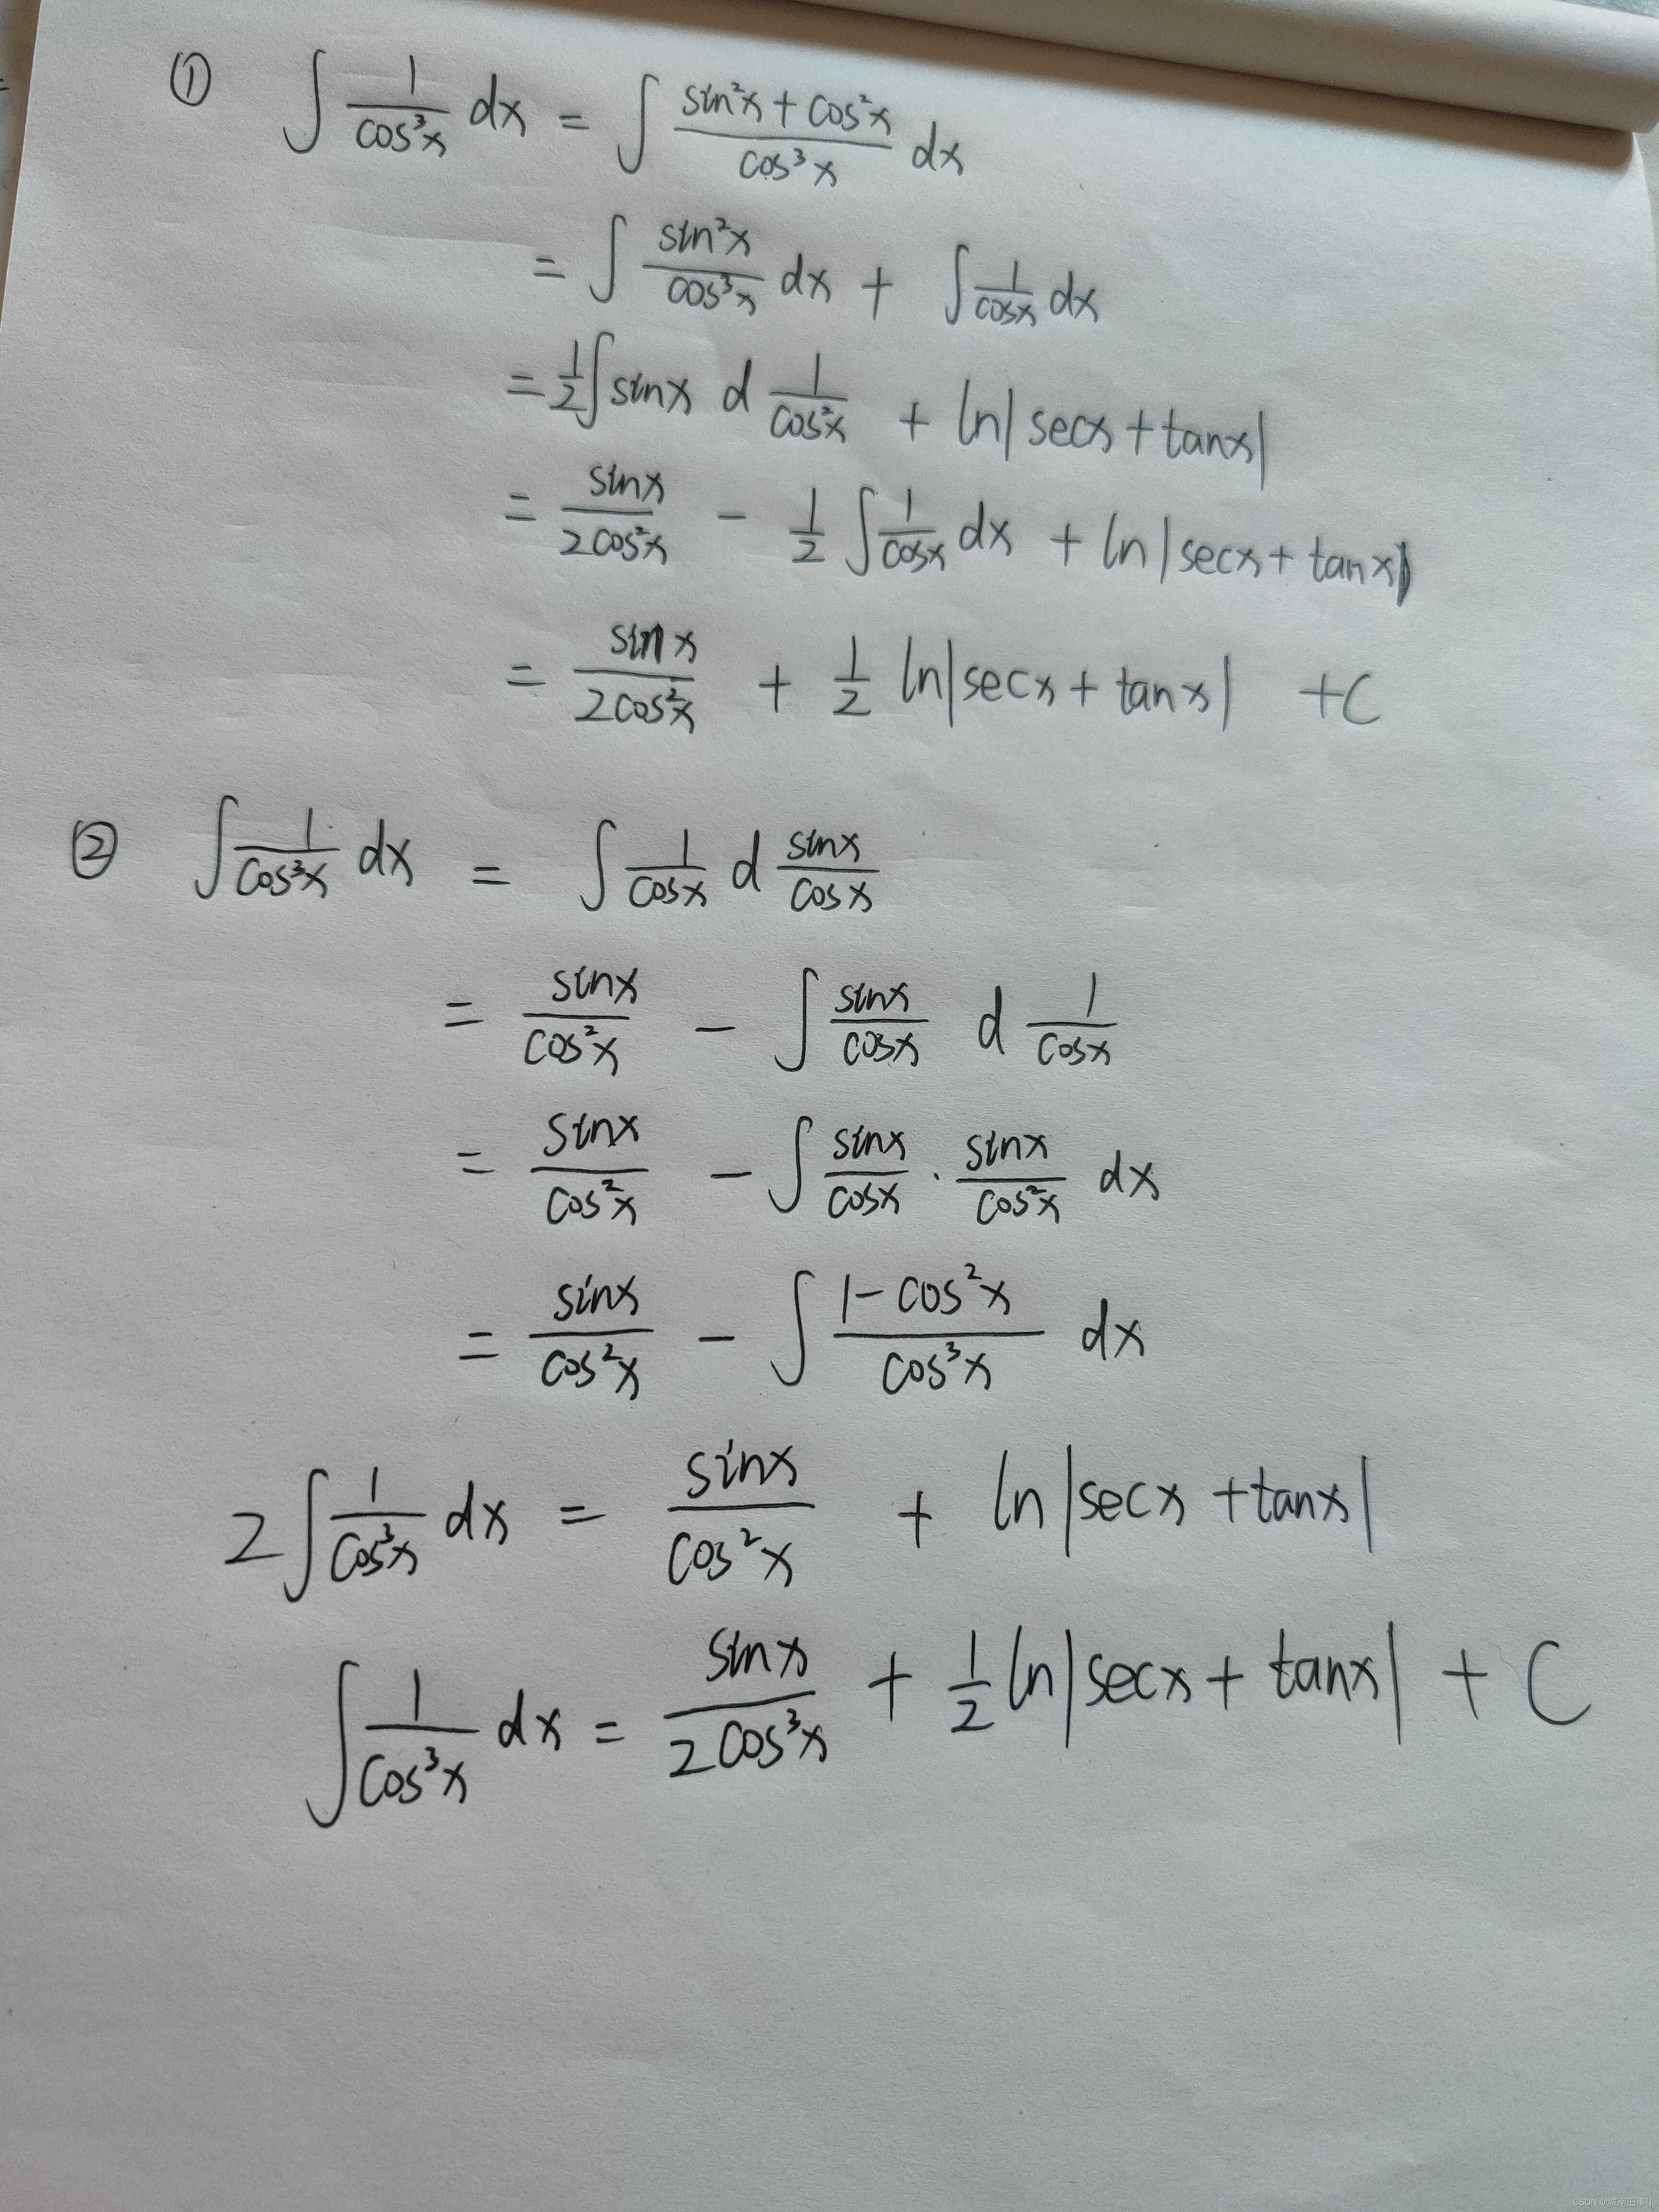 ① ∫ 1/cos³x dx = ∫ (sin²x + cos²x)/cos³x dx
= ∫ sin²x/cos³x dx + ∫ 1/cosx dx
= 1/2 ∫ sinx d 1/cos²x + ln|secx + tanx|
= sinx/2cos²x - 1/2 ∫ 1/cosx dx + ln|secx + tanx|
= sinx/2cos²x + 1/2 ln|secx + tanx| + C
② ∫ 1/cos³x dx = ∫ 1/cosx d sinx/cosx
= sinx/cos²x - ∫ sinx/cosx d 1/cosx
= sinx/cos²x - ∫ sinx/cosx · sinx/cos²x dx
= sinx/cos²x - ∫ (1 - cos²x)/cos³x dx
2 ∫ 1/cos³x dx = sinx/cos²x + ln|secx + tanx|
∫ 1/cos³x dx = sinx/2cos³x + 1/2 ln|secx + tanx| + C